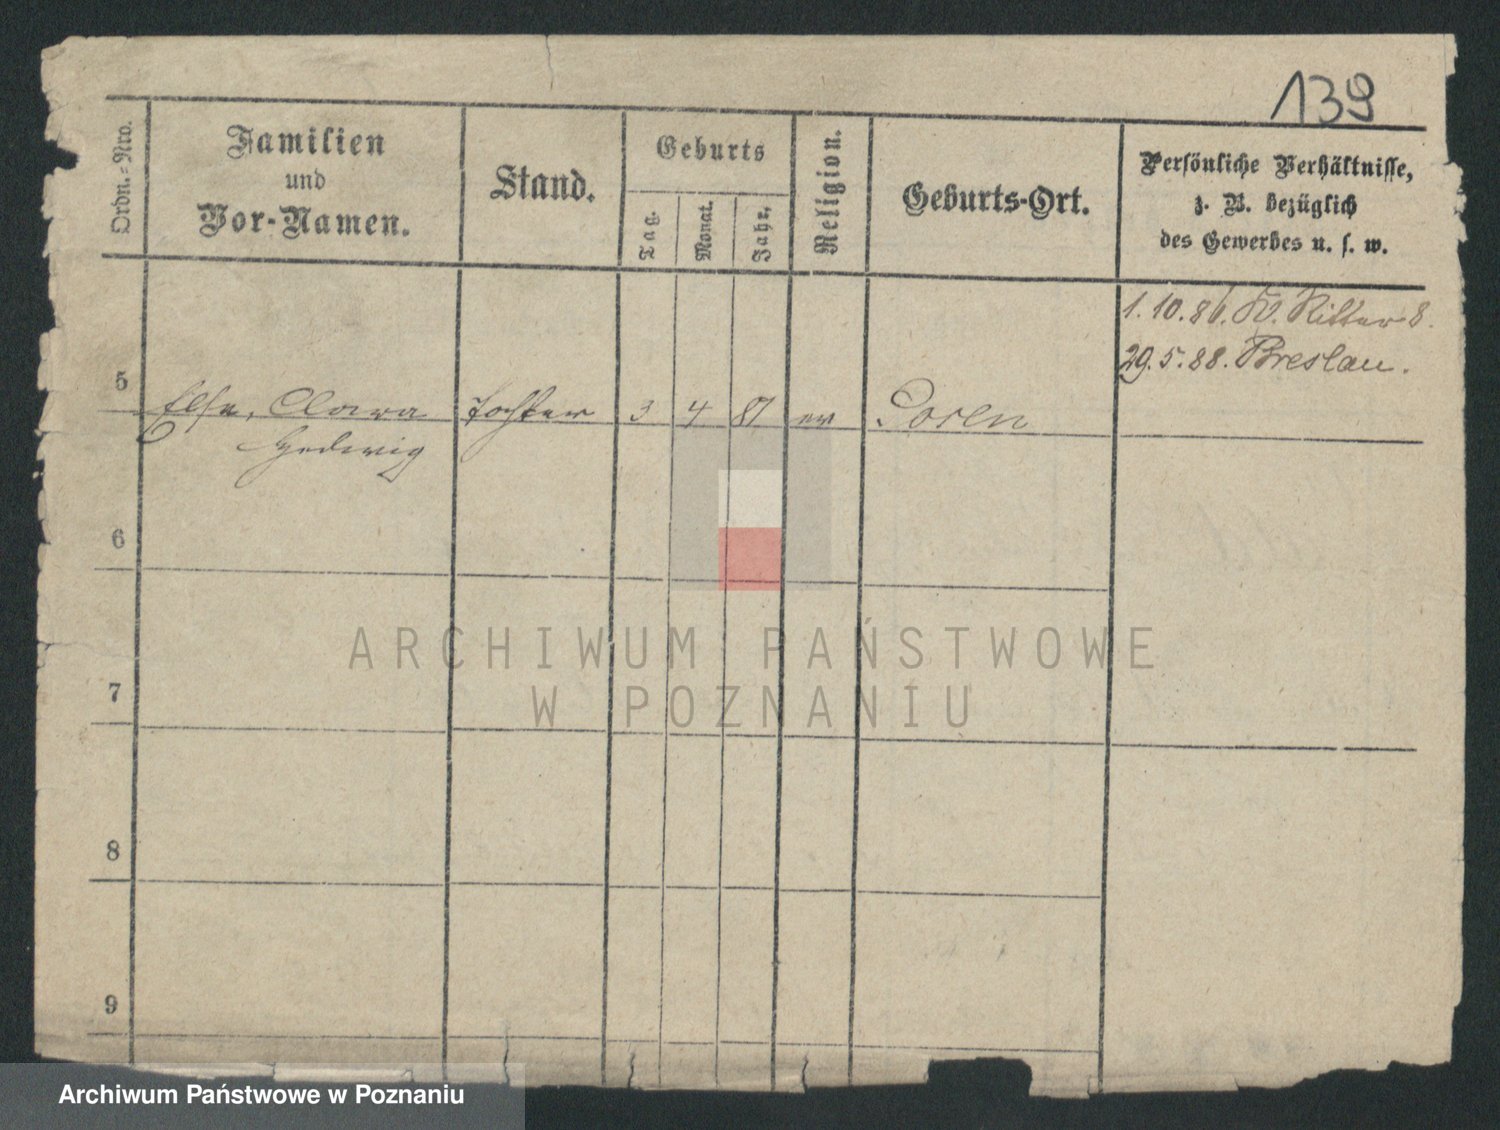 139
Ordn.-Nro.
Familien
und
Vor-Namen.
Stand.
Geburts
Tag.
Monat.
Jahr.
Religion.
Geburts-Ort.
Persönliche Verhältnisse,
z. B. bezüglich
des Gewerbes u. s. w.
1.10.86. Ritter 8.
29.5.88. Breslau.
5
Else, Clara Tochter 3 4 87 ev Posen
Hedwig
6
7
8
9
ARCHIWUM PAŃSTWOWE
W POZNANIU
Archiwum Państwowe w Poznaniu